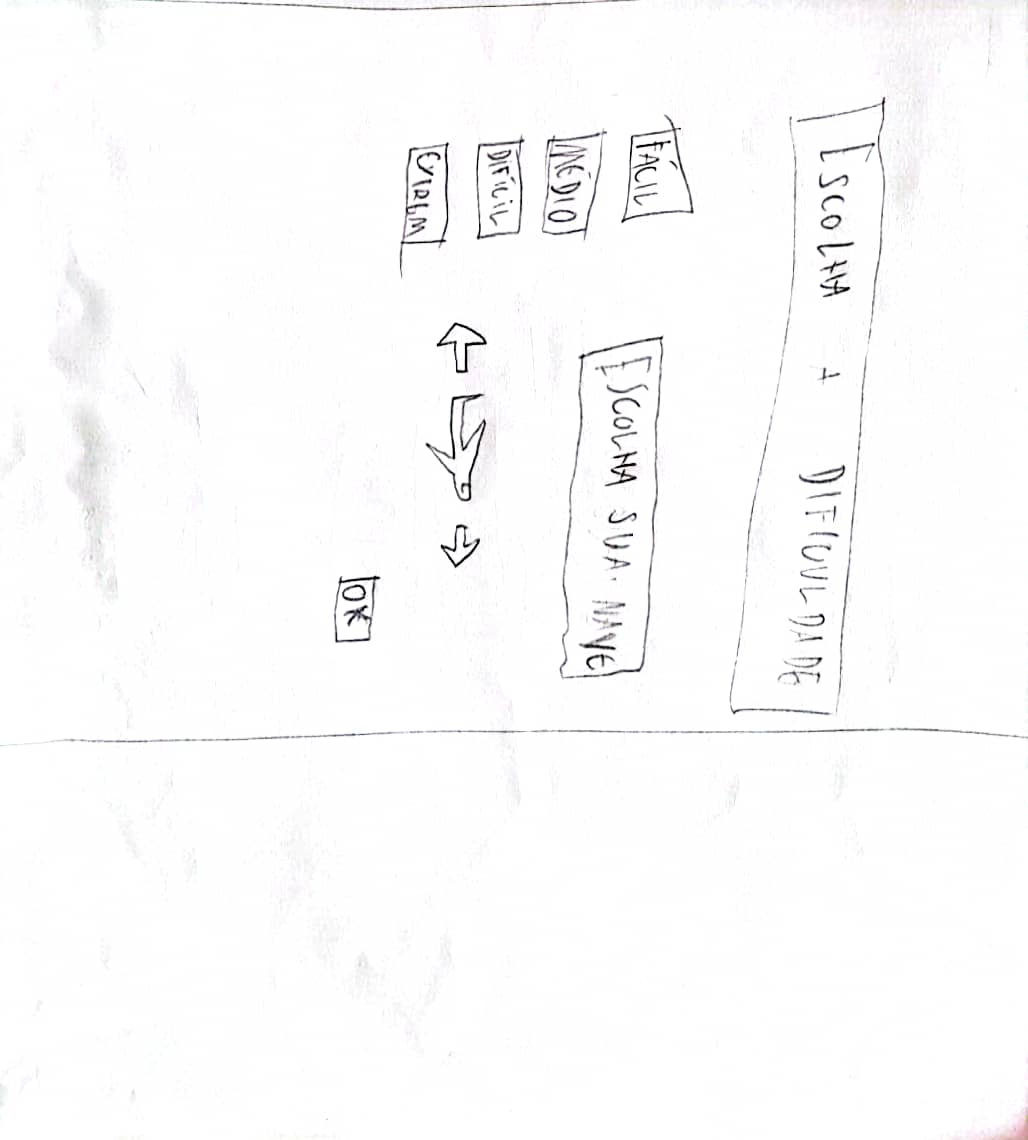 ESCOLHA A DIFICULDADE
FÁCIL
MÉDIO
DIFÍCIL
ESCOLHA SUA NAVE
OK